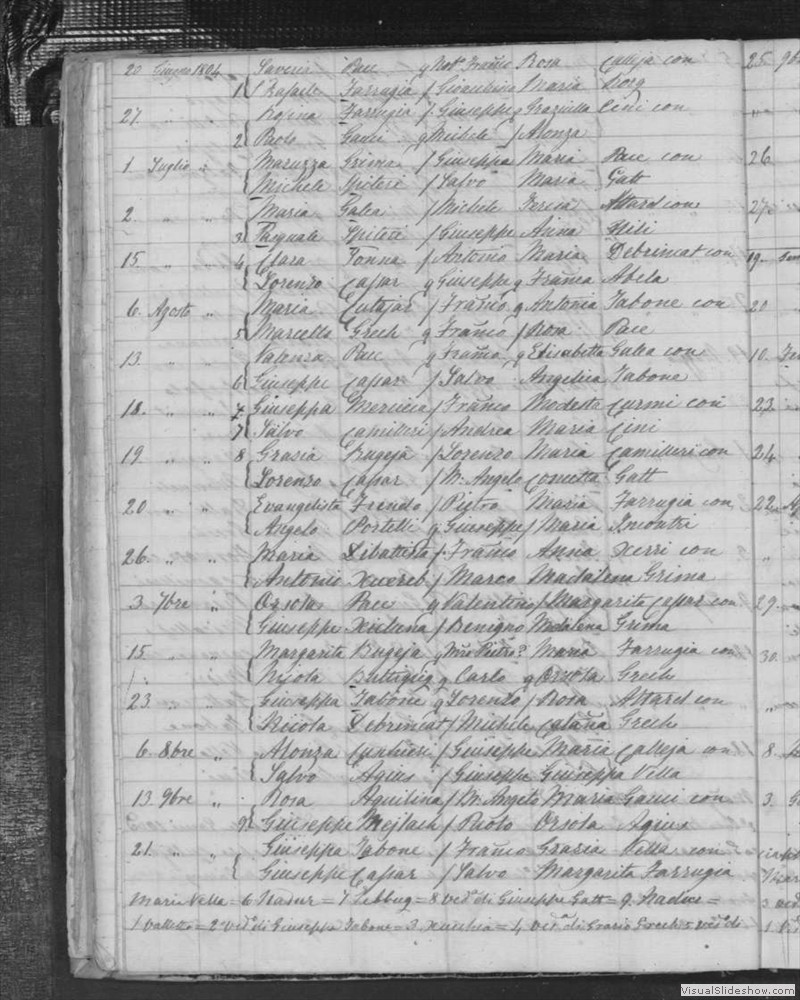 20 Giugno 1804 Saverio Pace q Not. Franco Rosa Calleja con 25
1 Rafaele Farrugia / Gioacchino Maria Borg
27 " " Rosina Farrugia / Giuseppe q Graziulla Cini con
2 Paolo Gauci q Michele / Alonza
1 Luglio " Maruzza Grima / Giuseppa Maria Pace con 26
Michele Spiteri / Salvo Maria Gatt
2 " " Maria Galea / Michele Teresa Attard con 27
3 Pasquale Spiteri / Giuseppe Anna Hili
15 " " 4 Clara Tonna / Antonio Maria Debrincat con 19
Lorenzo Caspar q Giuseppe q Franca Abela
6 Agosto " Maria Cutajar / Franco q Antonia Tabone con 20
5 Marcello Grech q Franco / Rosa Pace
13 " " Valenza Pace q Franco q Elisabetta Galea con 10
6 Giuseppe Caspar / Salvo Angelica Tabone
18 " " 7 Giuseppa Mercieca / Franco Modesta Curmi con 23
7 Salvo Camilleri / Andrea Maria Cini
19 " " 8 Grazia Bugeja / Lorenzo Maria Camilleri con 24
Lorenzo Caspar / M. Angelo Concetta Gatt
20 " " Evangelista Frendo / Pietro Maria Farrugia con 22
Angelo Portelli q Giuseppe / Maria
26 " " Maria Dibattista / Franco Anna Xerri con "
Antonio Xuereb / Marco Madalena Grima
3 7bre " Orsola Pace q Valentino / Margarita Caspar con 29
Giuseppe Xicluna / Benigno Madalena Grima
15 " " Margarita Bugeja q Pietro? Maria Farrugia con 30
Nicola Buttigieg q Carlo q Orsola Grech
23 " " Giuseppa Tabone q Lorenzo / Rosa Attard con "
Nicola Debrincat / Michele Catana Grech
6 8bre " Alonza / Giuseppe Maria Calleja con 8
Salvo Agius / Giuseppe Giuseppa Vella
13 9bre " Rosa Aquilina / M. Angelo Maria Gauci con 3
9 Giuseppe Mejlach / Paolo Orsola Agius
21 " " Giuseppa Tabone / Franco Grazia Vella con
Giuseppe Caspar / Salvo Margarita Farrugia
Maria Vella = 6 Nadur = 7 Zebbug = 8 ved.a di Giuseppe Gatt = 9 Nadur =
1 Valletta = 2 ved.a di Giuseppe Tabone = 3 Xeuchia = 4 ved.a di Grazio Grech = 5 ved.a di
VisualSlideshow.com